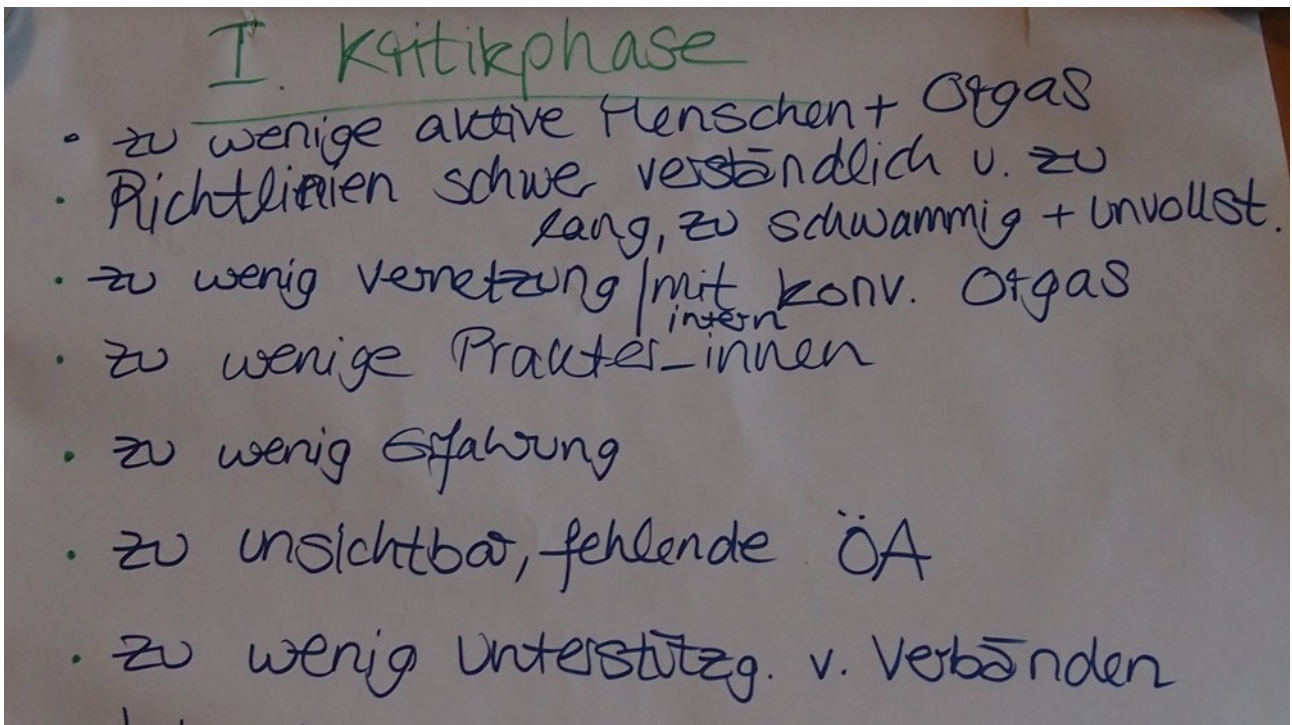 I. Kritikphase
• zu wenige aktive Menschen + Orgas
• Richtlinien schwer verständlich u. zu
lang, zu schwammig + unvollst.
• zu wenig Vernetzung / mit konv. Orgas
intern
• zu wenige Prakter_innen
• zu wenig Erfahrung
• zu unsichtbar, fehlende ÖA
• zu wenig Unterstützg. v. Verbänden